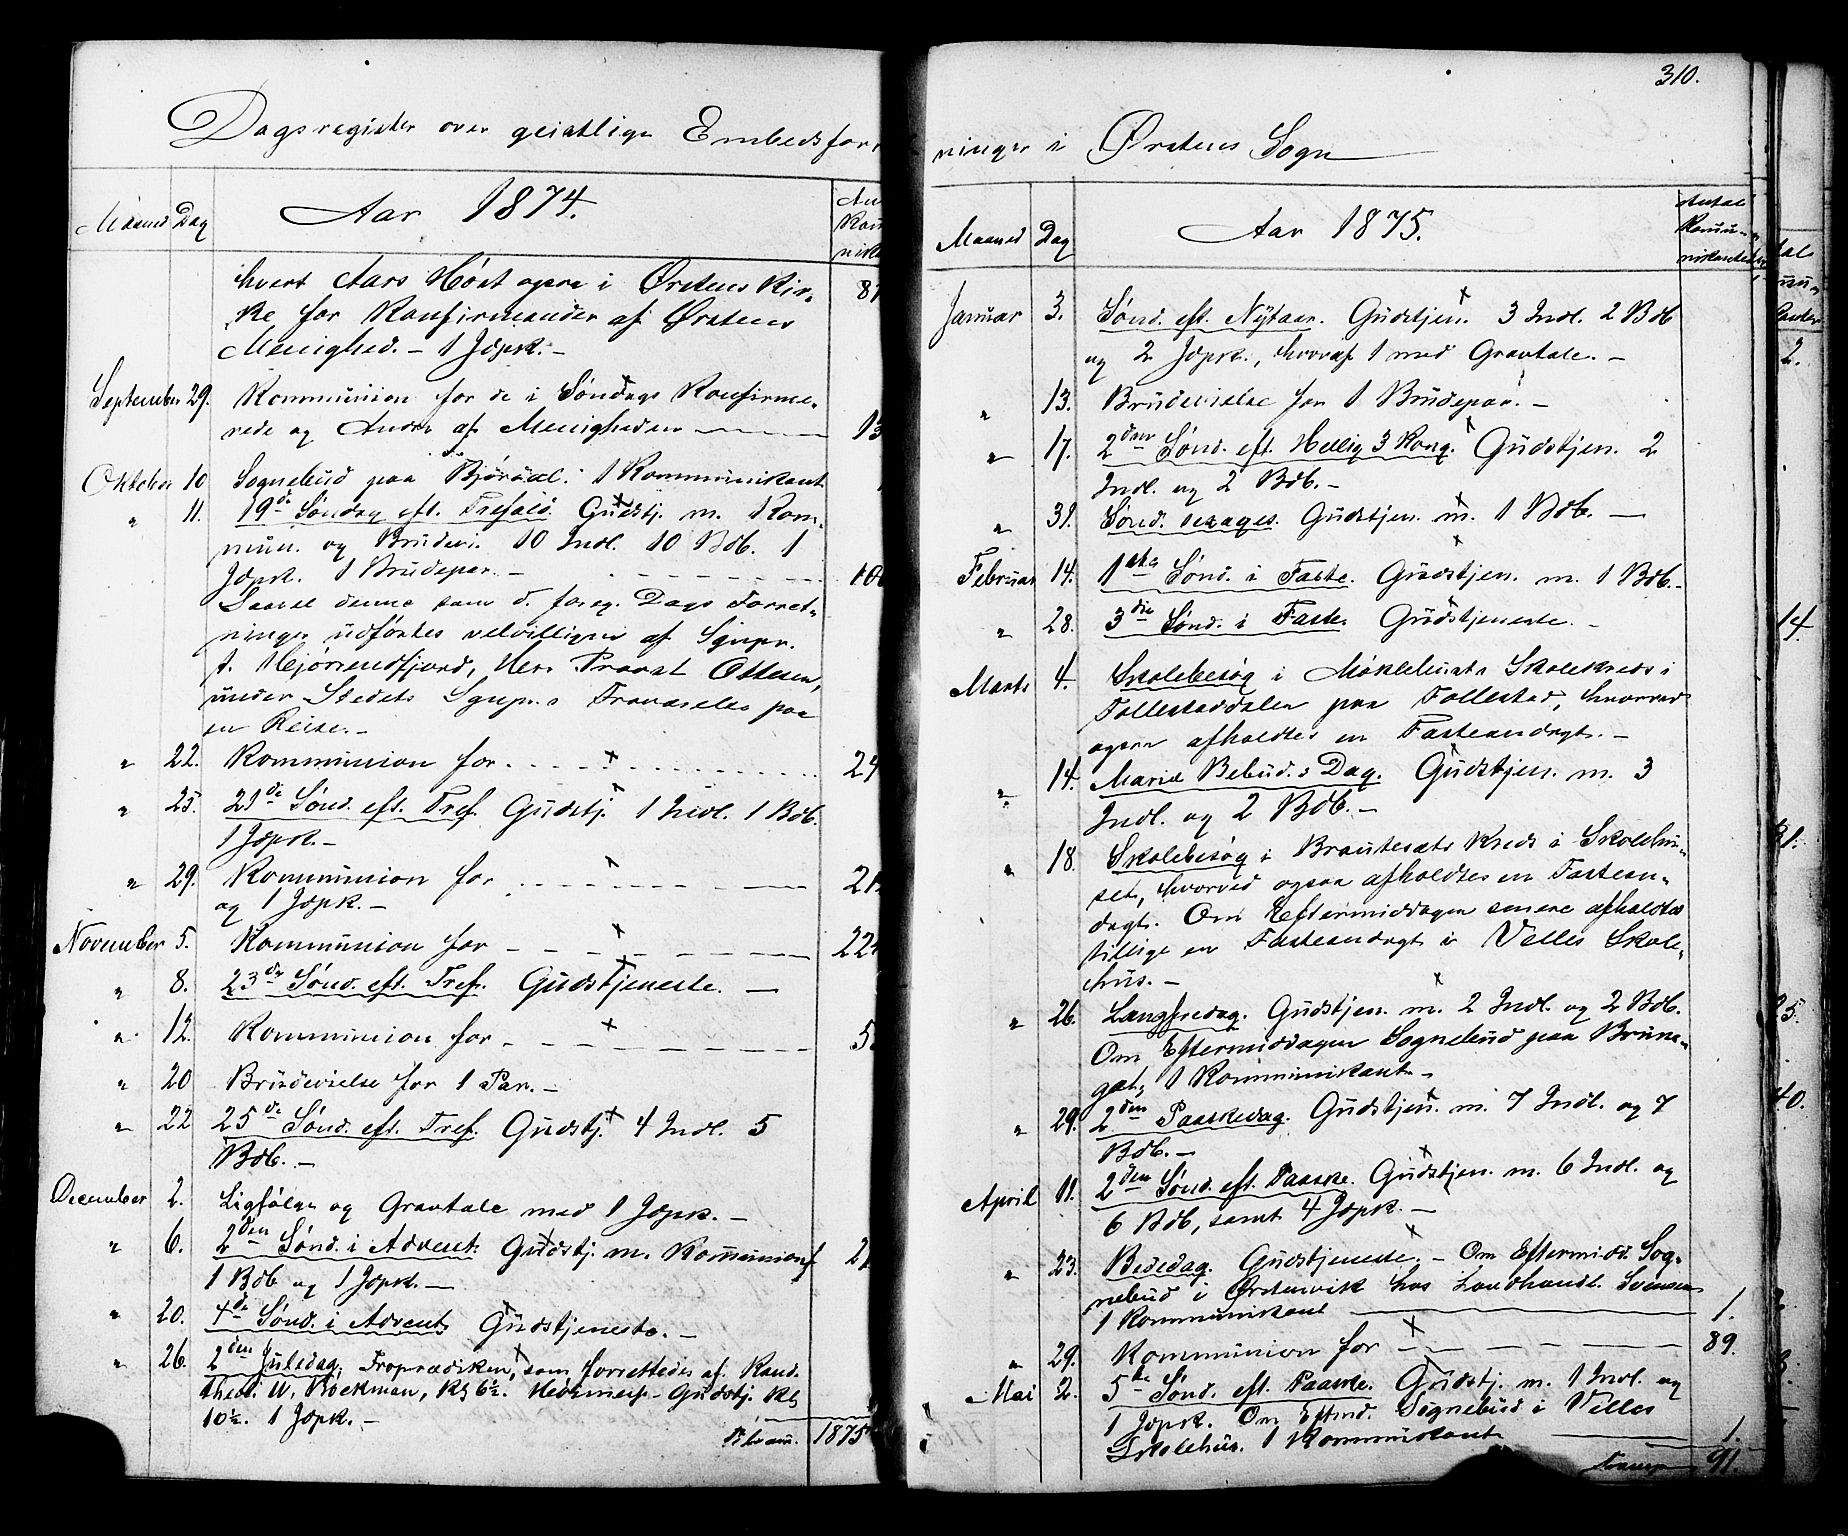 310.
Dagsregister over geistlige Embedsfor-
ninger i Ørstens Sogn
Maaned Dag Aar 1874.
hvert Aars Høst ogsaa i Ørstens Kir-
ke for Konfirmander af Ørstens
Menighed. – 1 Jdpk. –
September 29. Kommunion for de i Søndags Konfirme-
rede og Andre af Menigheden
Oktober 10 Sognebud paa Bjørdal. 1 Kommunikant
" 11. 19de Søndag eft. Trefold. Gudstj. m. Kom-
mun. og Brudevi. 10 Indl. 10 Bdb. 1
Jdpk. 1 Brudepar. –
Saavel denne som d. foreg. Dags Forret-
ninger udførtes velvilligen af Sgnpr.
t. Hjørrendfjord, Herr Provst Ottesen,
under Stedets Sgnpr.s Fraværelse paa
en Reise. –
" 22. Kommunion for 24
" 25. 21de Sønd. eft. Tref. Gudstj. 1 Indl. 1 Bdb.
1 Jdpk. –
" 29. Kommunion for 21
og 1 Jdpk. –
November 5. Kommunion for – 224
" 8. 23de Sønd. eft. Tref. Gudstjeneste. –
" 12. Kommunion for – 5
" 20 Brudevielse for 1 Par. –
" 22 25de Sønd. eft. Tref. Gudstj. 4 Indl. 5
Bdb. –
December 2. Ligfølge og Gravtale med 1 Jdpk. –
" 6. 2den Sønd. i Advent. Gudstj. m. Kommunion f.
1 Bdb og 1 Jdpk. –
" 20. 4de Sønd. i Advent. Gudstjeneste. –
" 26. 2den Juledag. Froprædiken, som forrettedes af Kand.
theol. W. Böckman, Kl 6½. Høimesse-Gudstj. Kl
10½. 1 Jdpk. –
1875
Maaned Dag Aar 1875. Antal
Kommu-
nikanter
Januar 3. Sønd. eft. Nytaar. Gudstjen. 3 Indl. 2 Bdb
og 2 Jdpk., hvoraf 1 med Gravtale. –
" 13. Brudevielse for 1 Brudepar. –
" 17. 2den Sønd. eft. Hellig 3 Kong. Gudstjen. 2
Indl. og 2 Bdb. –
" 31. Sønd. sexages. Gudstjen. m. 1 Bdb. –
Februar 14. 1ste Sønd. i Faste. Gudstjen. m. 1 Bdb. –
" 28. 3die Sønd. i Faste. Gudstjeneste. –
Marts 4. Skolebesøg i Møklebusts Skolekreds i
Follestaddalen paa Follestad, hvorved
ogsaa afholdtes en Fasteandagt. –
" 14. Mariæ Bebud.s Dag. Gudstjen. m. 3
Indl. og 2 Bdb. –
" 18. Skolebesøg i Brautesæts Kreds i Skolehu-
set, hvorved ogsaa afholdtes en Fastean-
dagt. Om Eftermiddagen senere afholdtes
tillige en Fasteandagt i Velles Skole-
hus. –
" 26. Langfredag. Gudstjen. m. 2 Indl. og 2 Bdb.
Om Eftermiddagen Sognebud paa Brune-
gat, 1 Kommunikant. –
" 29. 2den Paaskedag. Gudstjen. m. 7 Indl. og 7
Bdb. –
April 11. 2den Sønd. eft. Paaske. Gudstjen. m. 6 Indl. og
6 Bdb, samt 4 Jdpk. –
" 23. Bededag. Gudstjeneste. – Om Eftermidd. Sog-
nebud i Ørstenvik hos Landhandl. Svensen
1 Kommunikant 1.
" 29. Kommunion for 89.
Mai 2. 5te Sønd. eft. Paaske. Gudstj. m. 1 Indl. og
1 Jdpk. Om Eftmd. Sognebud i Velles
Skolehus. 1 Kommunikant 1.
91.